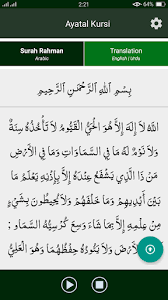 2:21
Ayatal Kursi
Surah Rahman Translation
Arabic English | Urdu
بِسْمِ اللّٰهِ الرَّحْمٰنِ الرَّحِيْمِ
اللّٰهُ لَا إِلٰهَ إِلَّا هُوَ الْحَيُّ الْقَيُّومُ لَا تَأْخُذُهُ سِنَةٌ
وَلَا نَوْمٌ لَهُ مَا فِي السَّمَاوَاتِ وَمَا فِي الْأَرْضِ
مَنْ ذَا الَّذِي يَشْفَعُ عِنْدَهُ إِلَّا بِإِذْنِهِ يَعْلَمُ مَا
بَيْنَ أَيْدِيهِمْ وَمَا خَلْفَهُمْ وَلَا يُحِيطُونَ بِشَيْءٍ
مِنْ عِلْمِهِ إِلَّا بِمَا شَاءَ وَسِعَ كُرْسِيُّهُ السَّمَاوَ
اتِ وَالْأَرْضَ وَلَا يَئُودُهُ حِفْظُهُمَا وَهُوَ الْعَلِيُّ